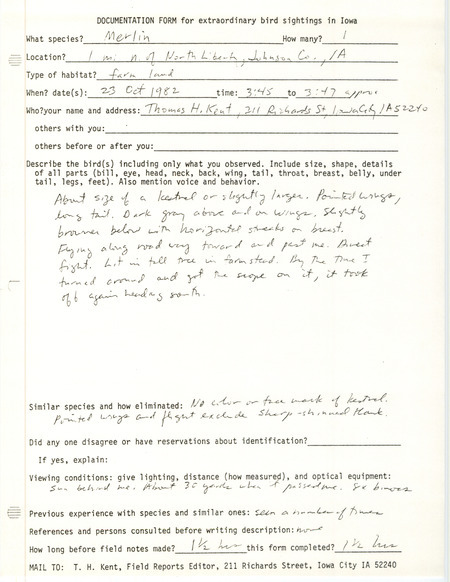 DOCUMENTATION FORM for extraordinary bird sightings in Iowa
What species? Merlin How many? 1
Location? 1 mi n of North Liberty, Johnson Co., IA
Type of habitat? farm land
When? date(s): 23 Oct 1982 time: 3:45 to 3:47 approx
Who?your name and address: Thomas H. Kent, 211 Richards St, Iowa City IA 52240
others with you:
others before or after you:
Describe the bird(s) including only what you observed. Include size, shape, details
of all parts (bill, eye, head, neck, back, wing, tail, throat, breast, belly, under
tail, legs, feet). Also mention voice and behavior.
About size of a kestrel or slightly larger. Pointed wings,
long tail. Dark gray above and on wings. Slightly
browner below with horizontal streaks on breast.
Flying along road way toward and past me. Direct
flight. Lit in tall tree in farmstead. By the time I
turned around and got the scope on it, it took
off again heading south.
Similar species and how eliminated: No color or face mark of kestrel.
Pointed wings and flight exclude Sharp-shinned Hawk.
Did any one disagree or have reservations about identification?
If yes, explain:
Viewing conditions: give lighting, distance (how measured), and optical equipment:
Sun behind me. About 30 yards when it passed me.
Previous experience with species and similar ones: seen a number of times
References and persons consulted before writing description: none
How long before field notes made? 1½ hrs this form completed? 1½ hrs
MAIL TO: T. H. Kent, Field Reports Editor, 211 Richards Street, Iowa City IA 52240